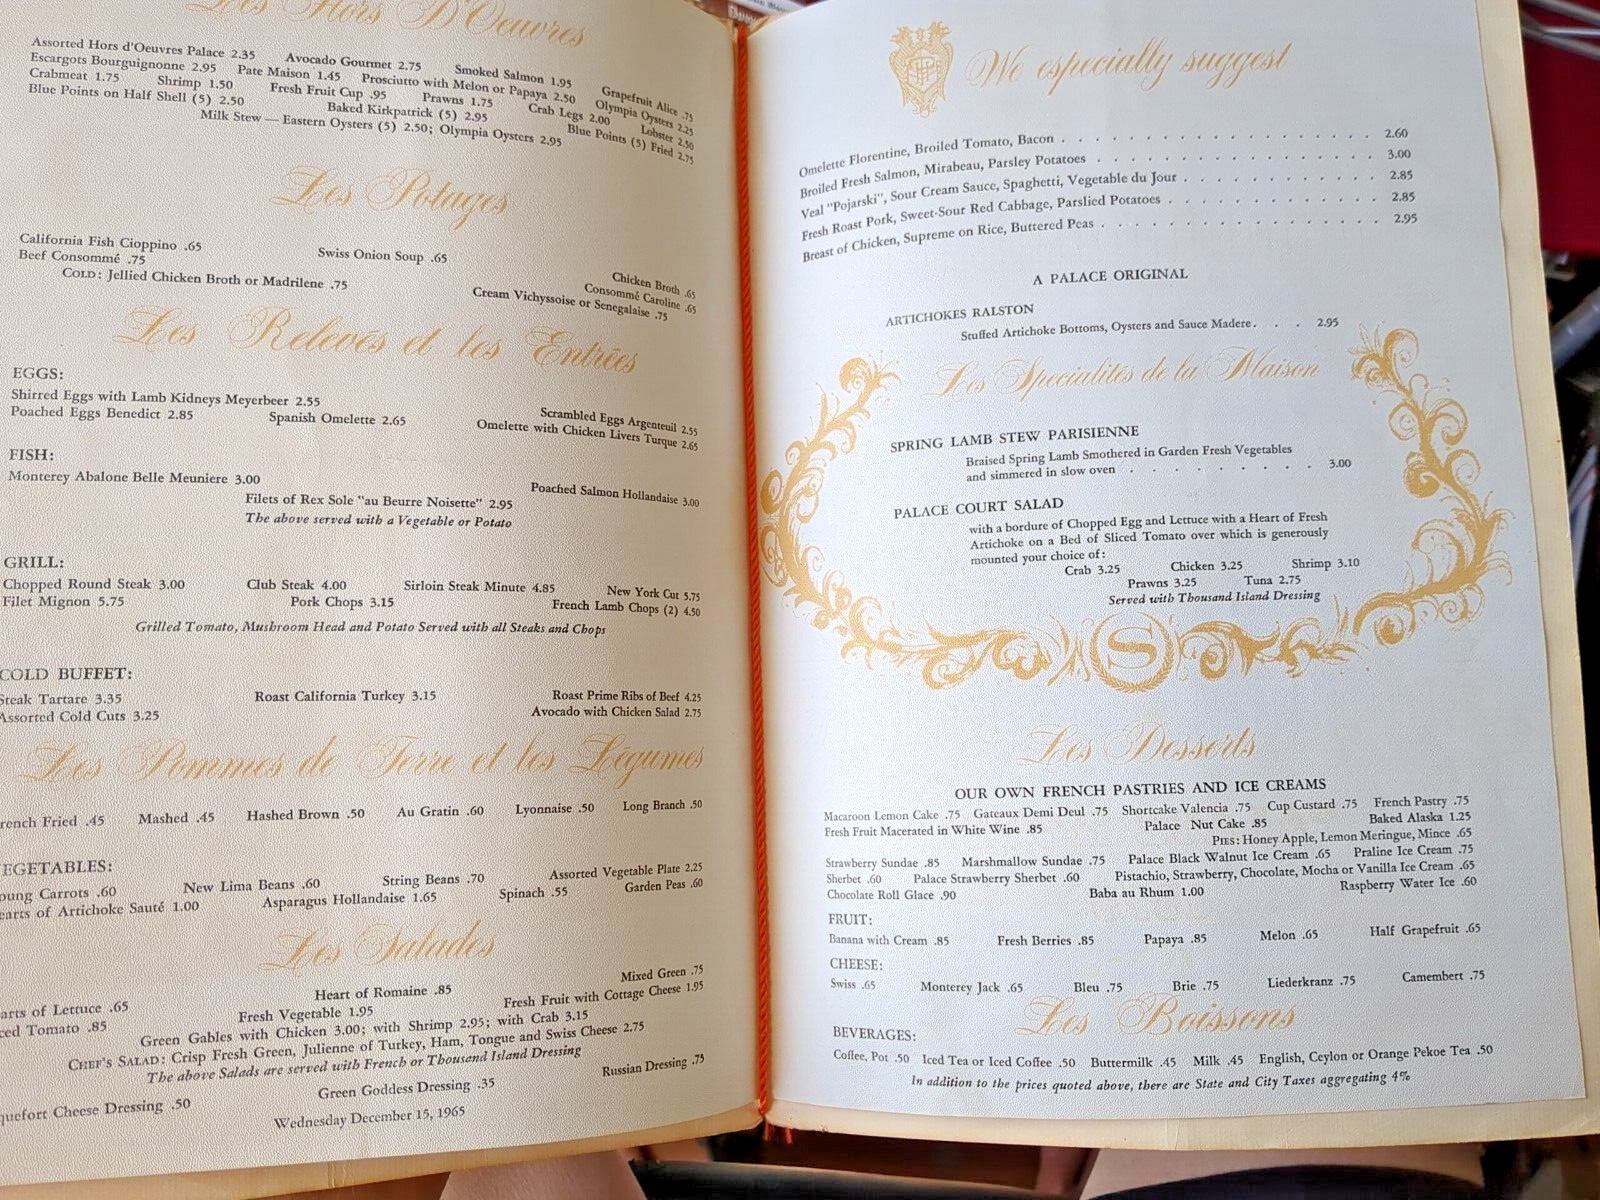 Les Hors D'Oeuvres
Assorted Hors d'Oeuvres Palace 2.35 Avocado Gourmet 2.75 Smoked Salmon 1.95 Grapefruit Alice .75
Escargots Bourguignonne 2.95 Pate Maison 1.45 Prosciutto with Melon or Papaya 2.50 Olympia Oysters 2.25
Crabmeat 1.75 Shrimp 1.50 Fresh Fruit Cup .95 Prawns 1.75 Crab Legs 2.00 Lobster 2.50
Blue Points on Half Shell (5) 2.50 Baked Kirkpatrick (5) 2.95 Blue Points (5) Fried 2.75
Milk Stew — Eastern Oysters (5) 2.50; Olympia Oysters 2.95
Les Potages
California Fish Cioppino .65 Swiss Onion Soup .65 Chicken Broth .65
Beef Consommé .75 Consommé Caroline .65
COLD: Jellied Chicken Broth or Madrilene .75 Cream Vichyssoise or Senegalaise .75
Les Relevés et les Entrées
EGGS:
Shirred Eggs with Lamb Kidneys Meyerbeer 2.55 Scrambled Eggs Argenteuil 2.55
Poached Eggs Benedict 2.85 Spanish Omelette 2.65 Omelette with Chicken Livers Turque 2.65
FISH:
Monterey Abalone Belle Meuniere 3.00 Poached Salmon Hollandaise 3.00
Filets of Rex Sole "au Beurre Noisette" 2.95
The above served with a Vegetable or Potato
GRILL:
Chopped Round Steak 3.00 Club Steak 4.00 Sirloin Steak Minute 4.85 New York Cut 5.75
Filet Mignon 5.75 Pork Chops 3.15 French Lamb Chops (2) 4.50
Grilled Tomato, Mushroom Head and Potato Served with all Steaks and Chops
COLD BUFFET:
Steak Tartare 3.35 Roast California Turkey 3.15 Roast Prime Ribs of Beef 4.25
Assorted Cold Cuts 3.25 Avocado with Chicken Salad 2.75
Les Pommes de Terre et les Légumes
rench Fried .45 Mashed .45 Hashed Brown .50 Au Gratin .60 Lyonnaise .50 Long Branch .50
EGETABLES:
oung Carrots .60 New Lima Beans .60 String Beans .70 Assorted Vegetable Plate 2.25
earts of Artichoke Sauté 1.00 Asparagus Hollandaise 1.65 Spinach .55 Garden Peas .60
Les Salades
arts of Lettuce .65 Heart of Romaine .85 Mixed Green .75
ced Tomato .85 Fresh Vegetable 1.95 Fresh Fruit with Cottage Cheese 1.95
Green Gables with Chicken 3.00; with Shrimp 2.95; with Crab 3.15
CHEF'S SALAD: Crisp Fresh Green, Julienne of Turkey, Ham, Tongue and Swiss Cheese 2.75
The above Salads are served with French or Thousand Island Dressing
quefort Cheese Dressing .50 Green Goddess Dressing .35 Russian Dressing .75
Wednesday December 15, 1965
We especially suggest
Omelette Florentine, Broiled Tomato, Bacon . . . . 2.60
Broiled Fresh Salmon, Mirabeau, Parsley Potatoes . . . . 3.00
Veal "Pojarski", Sour Cream Sauce, Spaghetti, Vegetable du Jour . . . . 2.85
Fresh Roast Pork, Sweet-Sour Red Cabbage, Parslied Potatoes . . . . 2.85
Breast of Chicken, Supreme on Rice, Buttered Peas . . . . 2.95
A PALACE ORIGINAL
ARTICHOKES RALSTON
Stuffed Artichoke Bottoms, Oysters and Sauce Madere . . . 2.95
Les Specialités de la Maison
SPRING LAMB STEW PARISIENNE
Braised Spring Lamb Smothered in Garden Fresh Vegetables
and simmered in slow oven . . . . 3.00
PALACE COURT SALAD
with a bordure of Chopped Egg and Lettuce with a Heart of Fresh
Artichoke on a Bed of Sliced Tomato over which is generously
mounted your choice of:
Crab 3.25 Chicken 3.25 Shrimp 3.10
Prawns 3.25 Tuna 2.75
Served with Thousand Island Dressing
S
Les Desserts
OUR OWN FRENCH PASTRIES AND ICE CREAMS
Macaroon Lemon Cake .75 Gateaux Demi Deul .75 Shortcake Valencia .75 Cup Custard .75 French Pastry .75
Fresh Fruit Macerated in White Wine .85 Palace Nut Cake .85 Baked Alaska 1.25
PIES: Honey Apple, Lemon Meringue, Mince .65
Strawberry Sundae .85 Marshmallow Sundae .75 Palace Black Walnut Ice Cream .65 Praline Ice Cream .75
Sherbet .60 Palace Strawberry Sherbet .60 Pistachio, Strawberry, Chocolate, Mocha or Vanilla Ice Cream .65
Chocolate Roll Glace .90 Baba au Rhum 1.00 Raspberry Water Ice .60
FRUIT:
Banana with Cream .85 Fresh Berries .85 Papaya .85 Melon .65 Half Grapefruit .65
CHEESE:
Swiss .65 Monterey Jack .65 Bleu .75 Brie .75 Liederkranz .75 Camembert .75
Les Boissons
BEVERAGES:
Coffee, Pot .50 Iced Tea or Iced Coffee .50 Buttermilk .45 Milk .45 English, Ceylon or Orange Pekoe Tea .50
In addition to the prices quoted above, there are State and City Taxes aggregating 4%